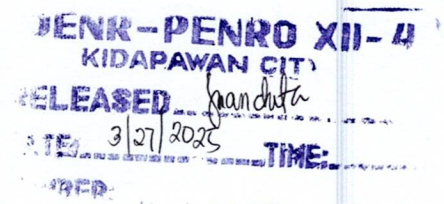 DENR-PENRO XII-4
KIDAPAWAN CITY
RELEASED
DATE: 3/27/2025 TIME: